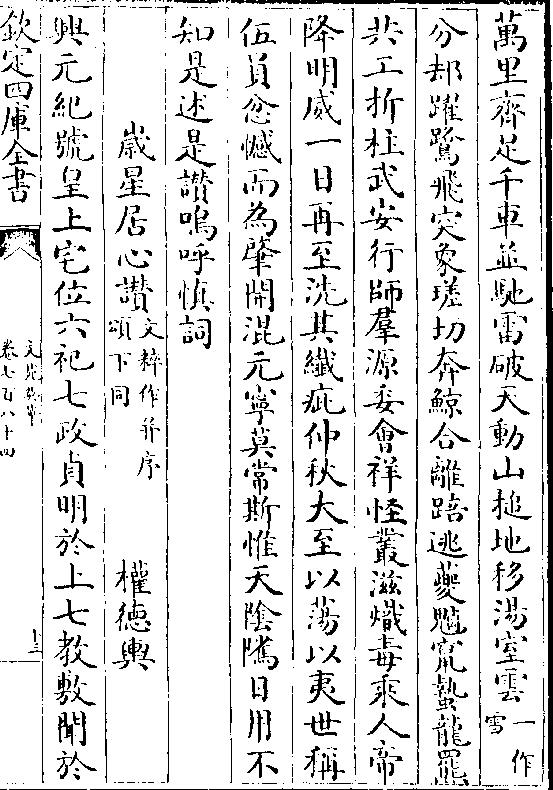 萬里齊足千車並馳雷破天動山搥地移湯室雲一作雪
分却躍鷺飛突象瑳切奔鯨合離踣逃夔魖窀蟄龍羆
共工折柱武安行師羣源委會祥怪叢滋熾毒乘人帝
降明威一日再至洗其纎疵仲秋大至以蕩以夷世稱
伍員忿憾而為肇開混元寧莫常斯惟天陰隲日用不
知是述是讃嗚呼慎詞
歲星居心讃文粹作頌下同并序 權德輿
興元紀號皇上宅位六祀七政貞明於上七教敷聞於
欽定四庫全書
文苑英華
卷七百八十四
十三